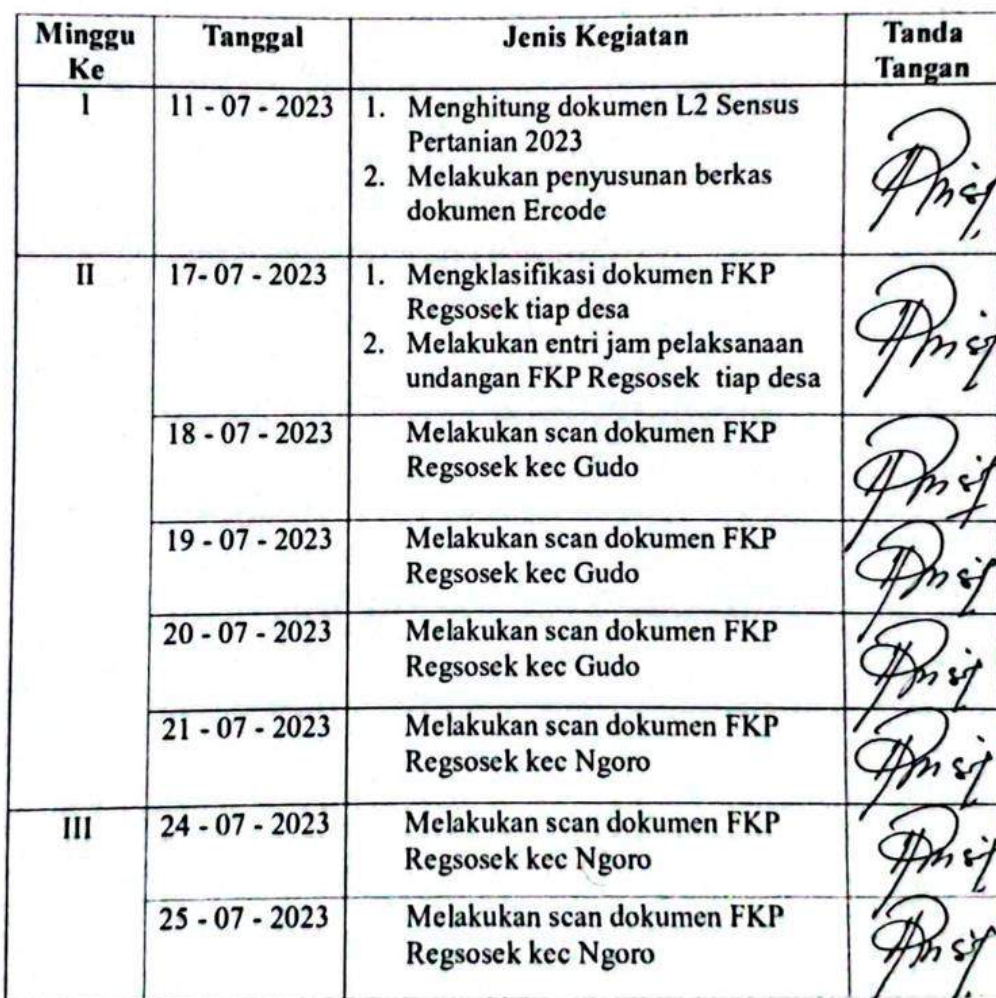 Minggu Ke Tanggal Jenis Kegiatan Tanda Tangan
I 11 - 07 - 2023 1. Menghitung dokumen L2 Sensus
Pertanian 2023
2. Melakukan penyusunan berkas
dokumen Ercode
II 17- 07 - 2023 1. Mengklasifikasi dokumen FKP
Regsosek tiap desa
2. Melakukan entri jam pelaksanaan
undangan FKP Regsosek tiap desa
18 - 07 - 2023 Melakukan scan dokumen FKP
Regsosek kec Gudo
19 - 07 - 2023 Melakukan scan dokumen FKP
Regsosek kec Gudo
20 - 07 - 2023 Melakukan scan dokumen FKP
Regsosek kec Gudo
21 - 07 - 2023 Melakukan scan dokumen FKP
Regsosek kec Ngoro
III 24 - 07 - 2023 Melakukan scan dokumen FKP
Regsosek kec Ngoro
25 - 07 - 2023 Melakukan scan dokumen FKP
Regsosek kec Ngoro